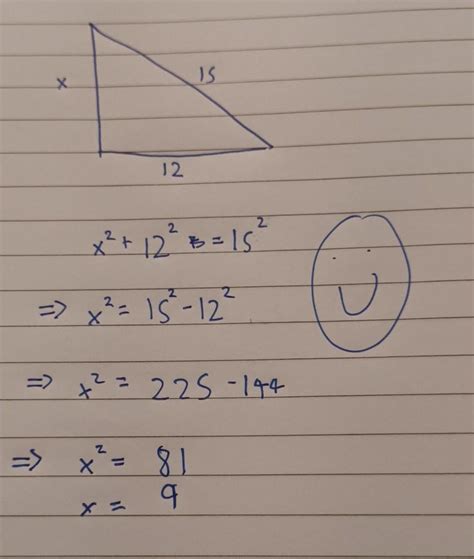 x 15
12
x² + 12² = 15²
⇒ x² = 15² - 12²
⇒ x² = 225 - 144
⇒ x² = 81
x = 9